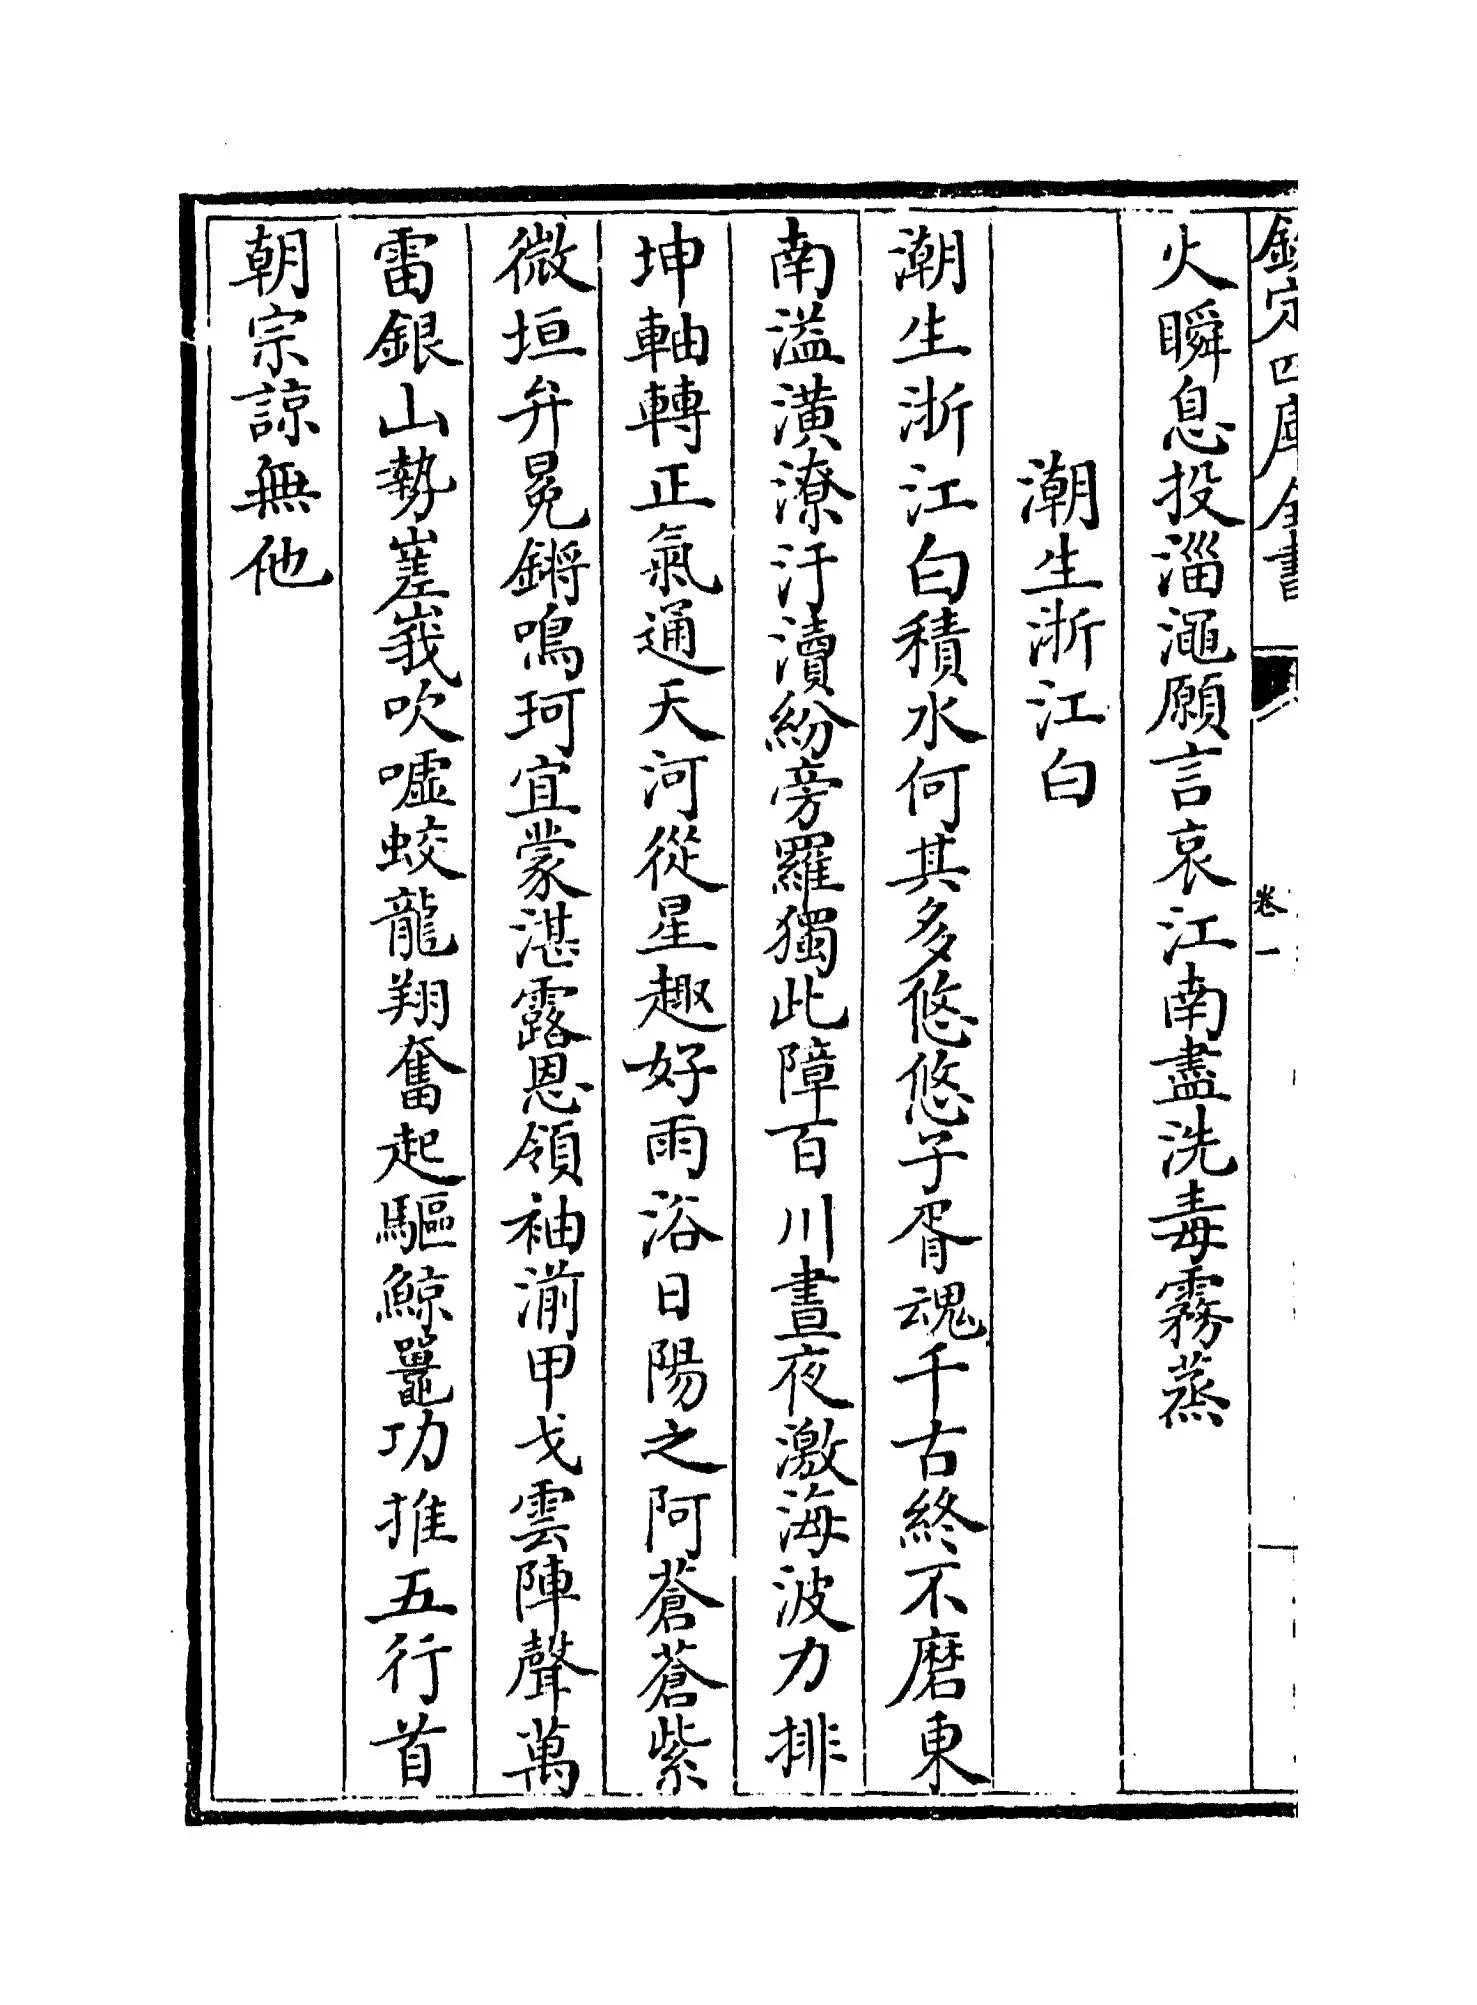 欽定四庫全書
卷一
火瞬息投淄澠願言哀江南盡洗毒霧蒸
潮生浙江白
潮生浙江白積水何其多悠悠子胥魂千古終不磨東
南溢潢潦汙瀆紛旁羅獨此障百川晝夜激海波力排
坤軸轉正氣通天河從星趣好雨浴日陽之阿蒼蒼紫
微垣弁冕鏘鳴珂宜蒙湛露恩領袖湔甲戈雲陣聲萬
雷銀山勢嵳峩吹嘘蛟龍翔奮起驅鯨鼉功推五行首
朝宗諒無他